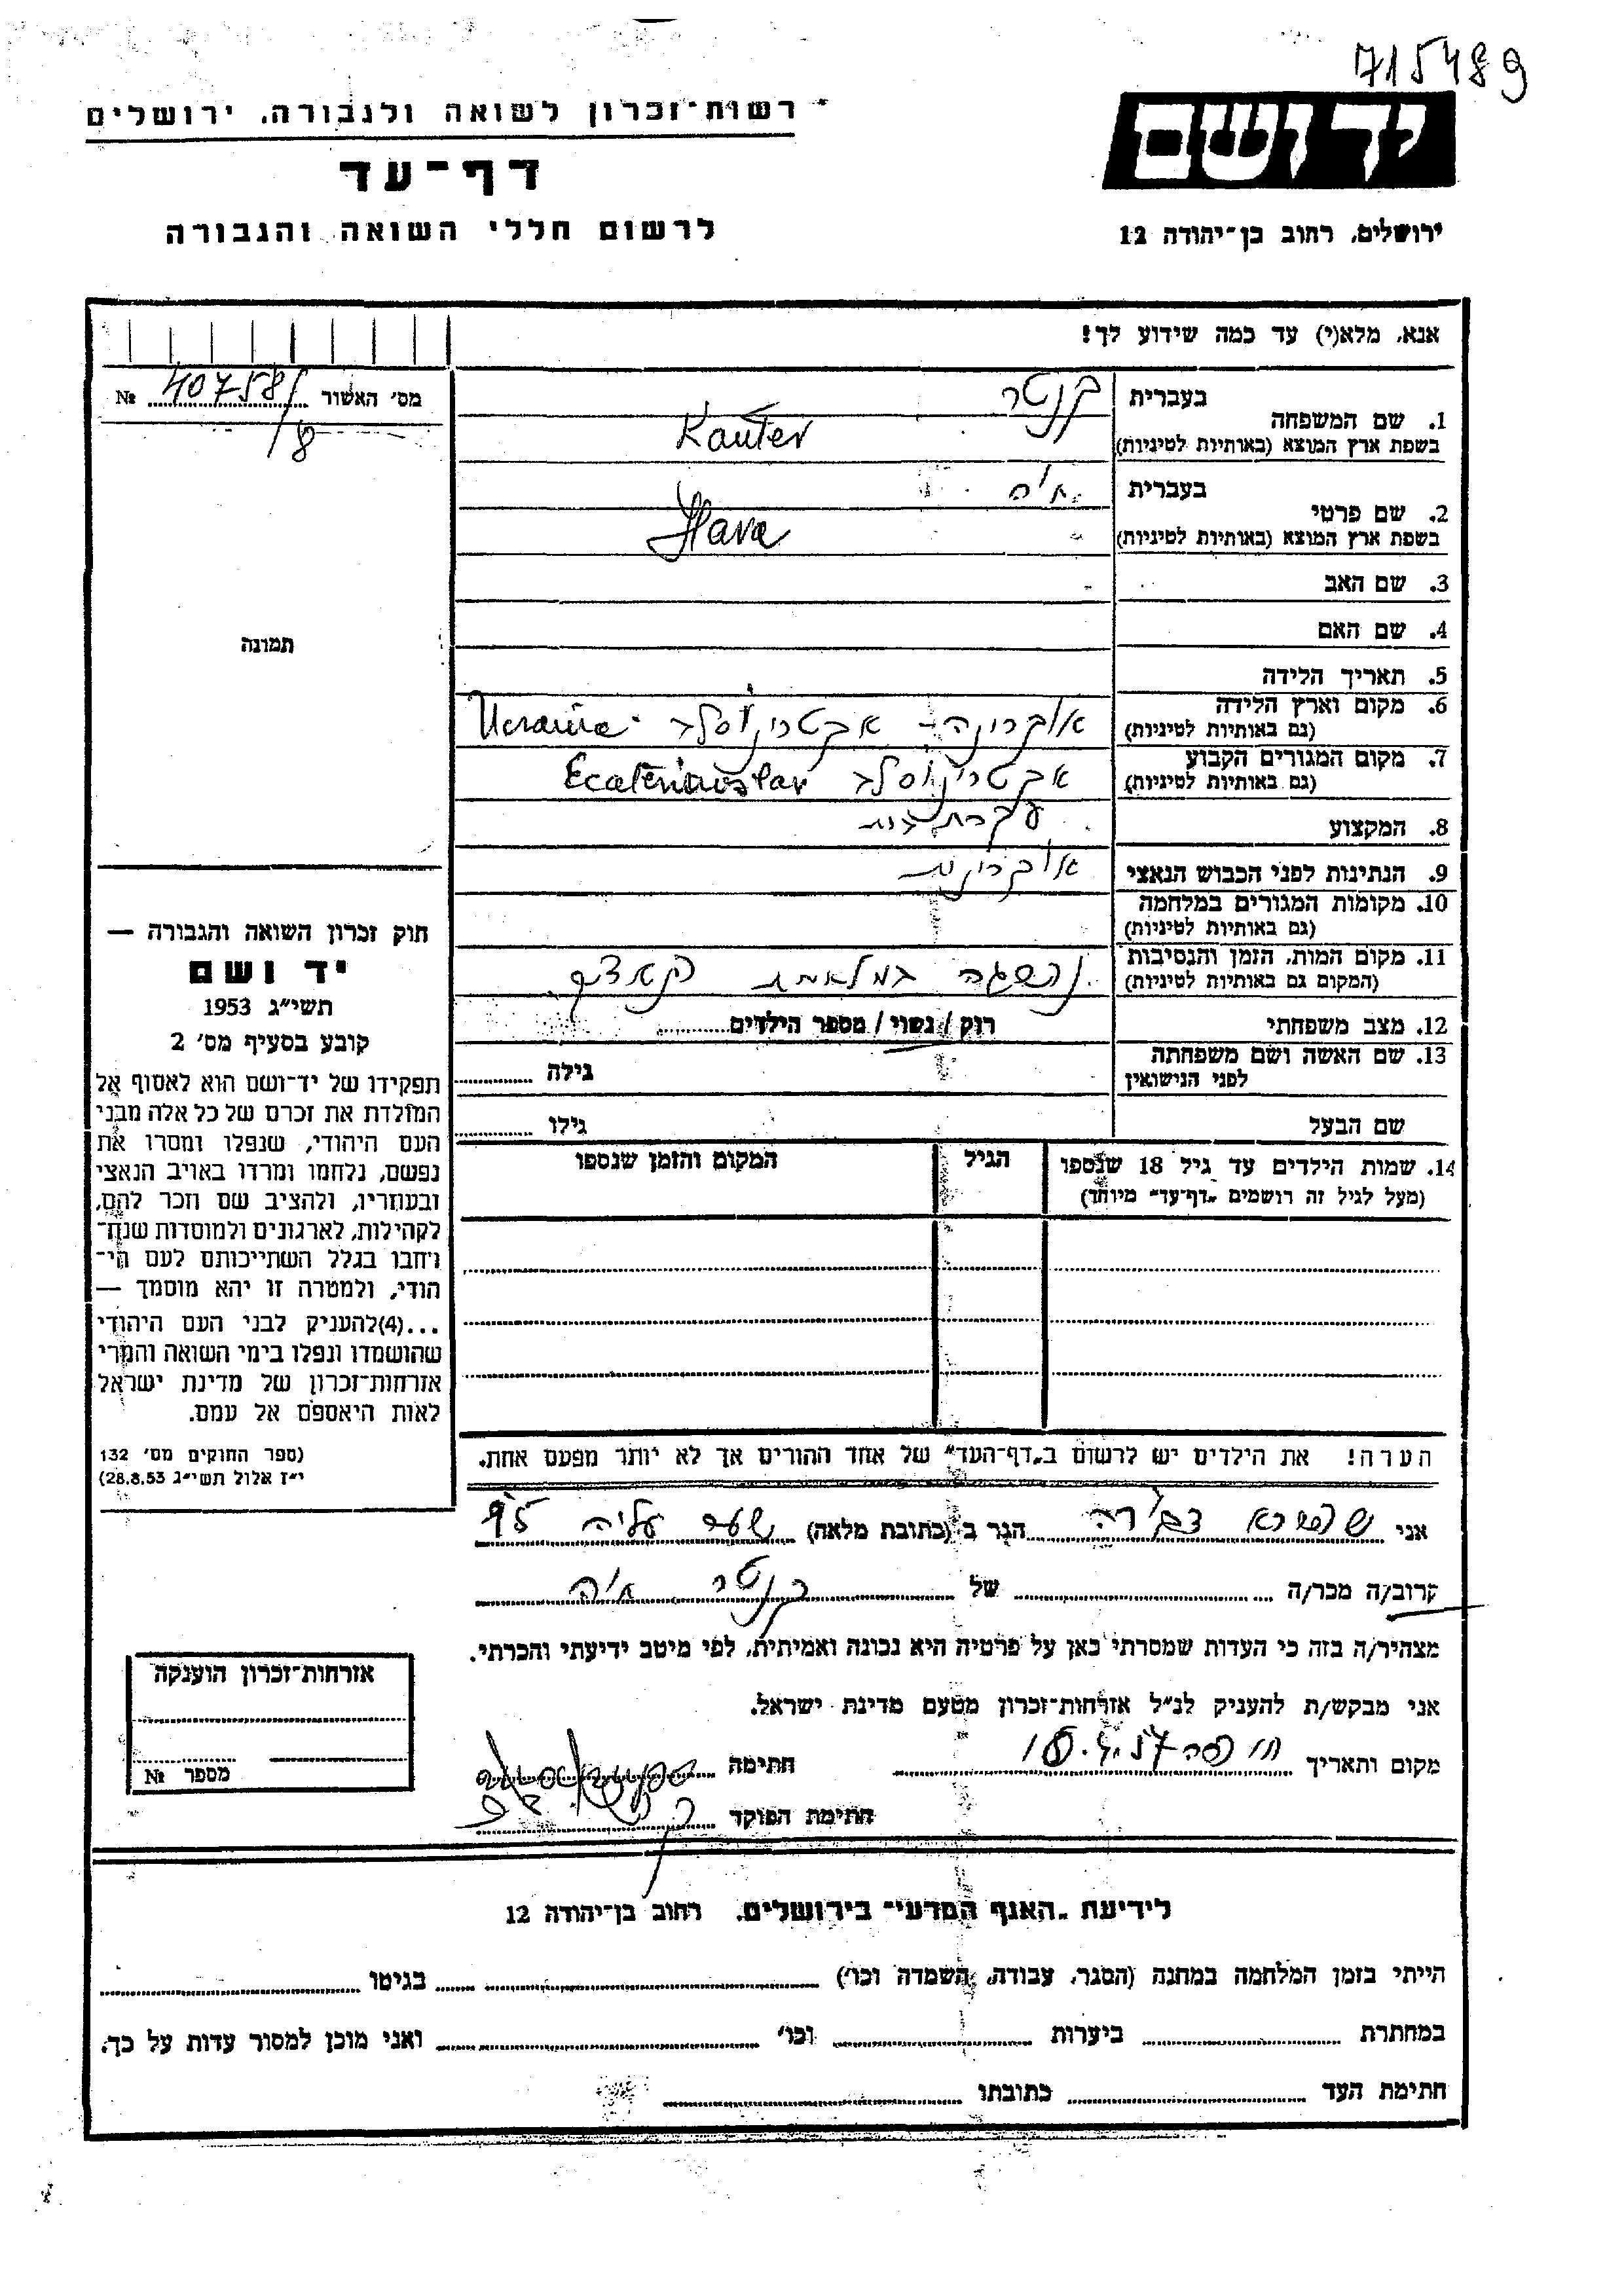 715489
רשות־זכרון לשואה ולגבורה, ירושלים
ידושם
דף־עד
ירושלים, רחוב בן־יהודה 12
לרשום חללי השואה והגבורה
אנא, מלא(י) עד כמה שידוע לך!
מס׳ האשור № 407581/8
1. שם המשפחה
בעברית קנטר
בשפת ארץ המוצא (באותיות לטיניות) Kanter
2. שם פרטי
בעברית חיה
בשפת ארץ המוצא (באותיות לטיניות) Hava
3. שם האב
4. שם האם
תמונה
5. תאריך הלידה
6. מקום וארץ הלידה
(גם באותיות לטיניות)
אוקרינה - אקטרינוסלב Ucraina
7. מקום המגורים הקבוע
(גם באותיות לטיניות)
אקטרינוסלב Ecaterinoslav
8. המקצוע עקרת בית
9. הנתינות לפני הכבוש הנאצי אוקרינית
10. מקומות המגורים במלחמה
(גם באותיות לטיניות)
11. מקום המות, הזמן והנסיבות
(המקום גם באותיות לטיניות)
12. מצב משפחתי רוק / נשוי / מספר הילדים
13. שם האשה ושם משפחתה
לפני הנישואין
גילה
שם הבעל
גילו
14. שמות הילדים עד גיל 18 שנספו
(מעל לגיל זה רושמים „דף־עד״ מיוחד)
הגיל
המקום והזמן שנספו
חוק זכרון השואה והגבורה —
יד ושם
תשי״ג 1953
קובע בסעיף מס׳ 2
תפקידו של יד־ושם הוא לאסוף אל
המולדת את זכרם של כל אלה מבני
העם היהודי, שנפלו ומסרו את
נפשם, נלחמו ומרדו באויב הנאצי
ובעוזריו, ולהציב שם וזכר להם,
לקהילות, לארגונים ולמוסדות שנח־
רבו בגלל השתייכותם לעם הי־
הודי, ולמטרה זו יהא מוסמך —
...(4)להעניק לבני העם היהודי
שהושמדו ונפלו בימי השואה והמרי
אזרחות־זכרון של מדינת ישראל
לאות היאספם אל עמם.
(ספר החוקים מס׳ 132
י״ז אלול תשי״ג 28.8.53)
הערה! את הילדים יש לרשום ב„דף־העד״ של אחד ההורים אך לא יותר מפעם אחת.
אני הגר ב (כתובת מלאה) שער עליה
קרוב/ה מכר/ה של קנטר חיה
מצהיר/ה בזה כי העדות שמסרתי כאן על פרטיה היא נכונה ואמיתית, לפי מיטב ידיעתי והכרתי.
אני מבקש/ת להעניק לנ״ל אזרחות־זכרון מטעם מדינת ישראל.
מקום ותאריך חיפה
חתימה
חתימת הפוקד
אזרחות־זכרון הוענקה
מספר №
לידיעת „האגף המדעי״ בירושלים, רחוב בן־יהודה 12
הייתי בזמן המלחמה במחנה (הסגר, עבודה, השמדה וכו׳) בגיטו
במחתרת ביערות וכו׳ ואני מוכן למסור עדות על כך.
חתימת העד כתובתו